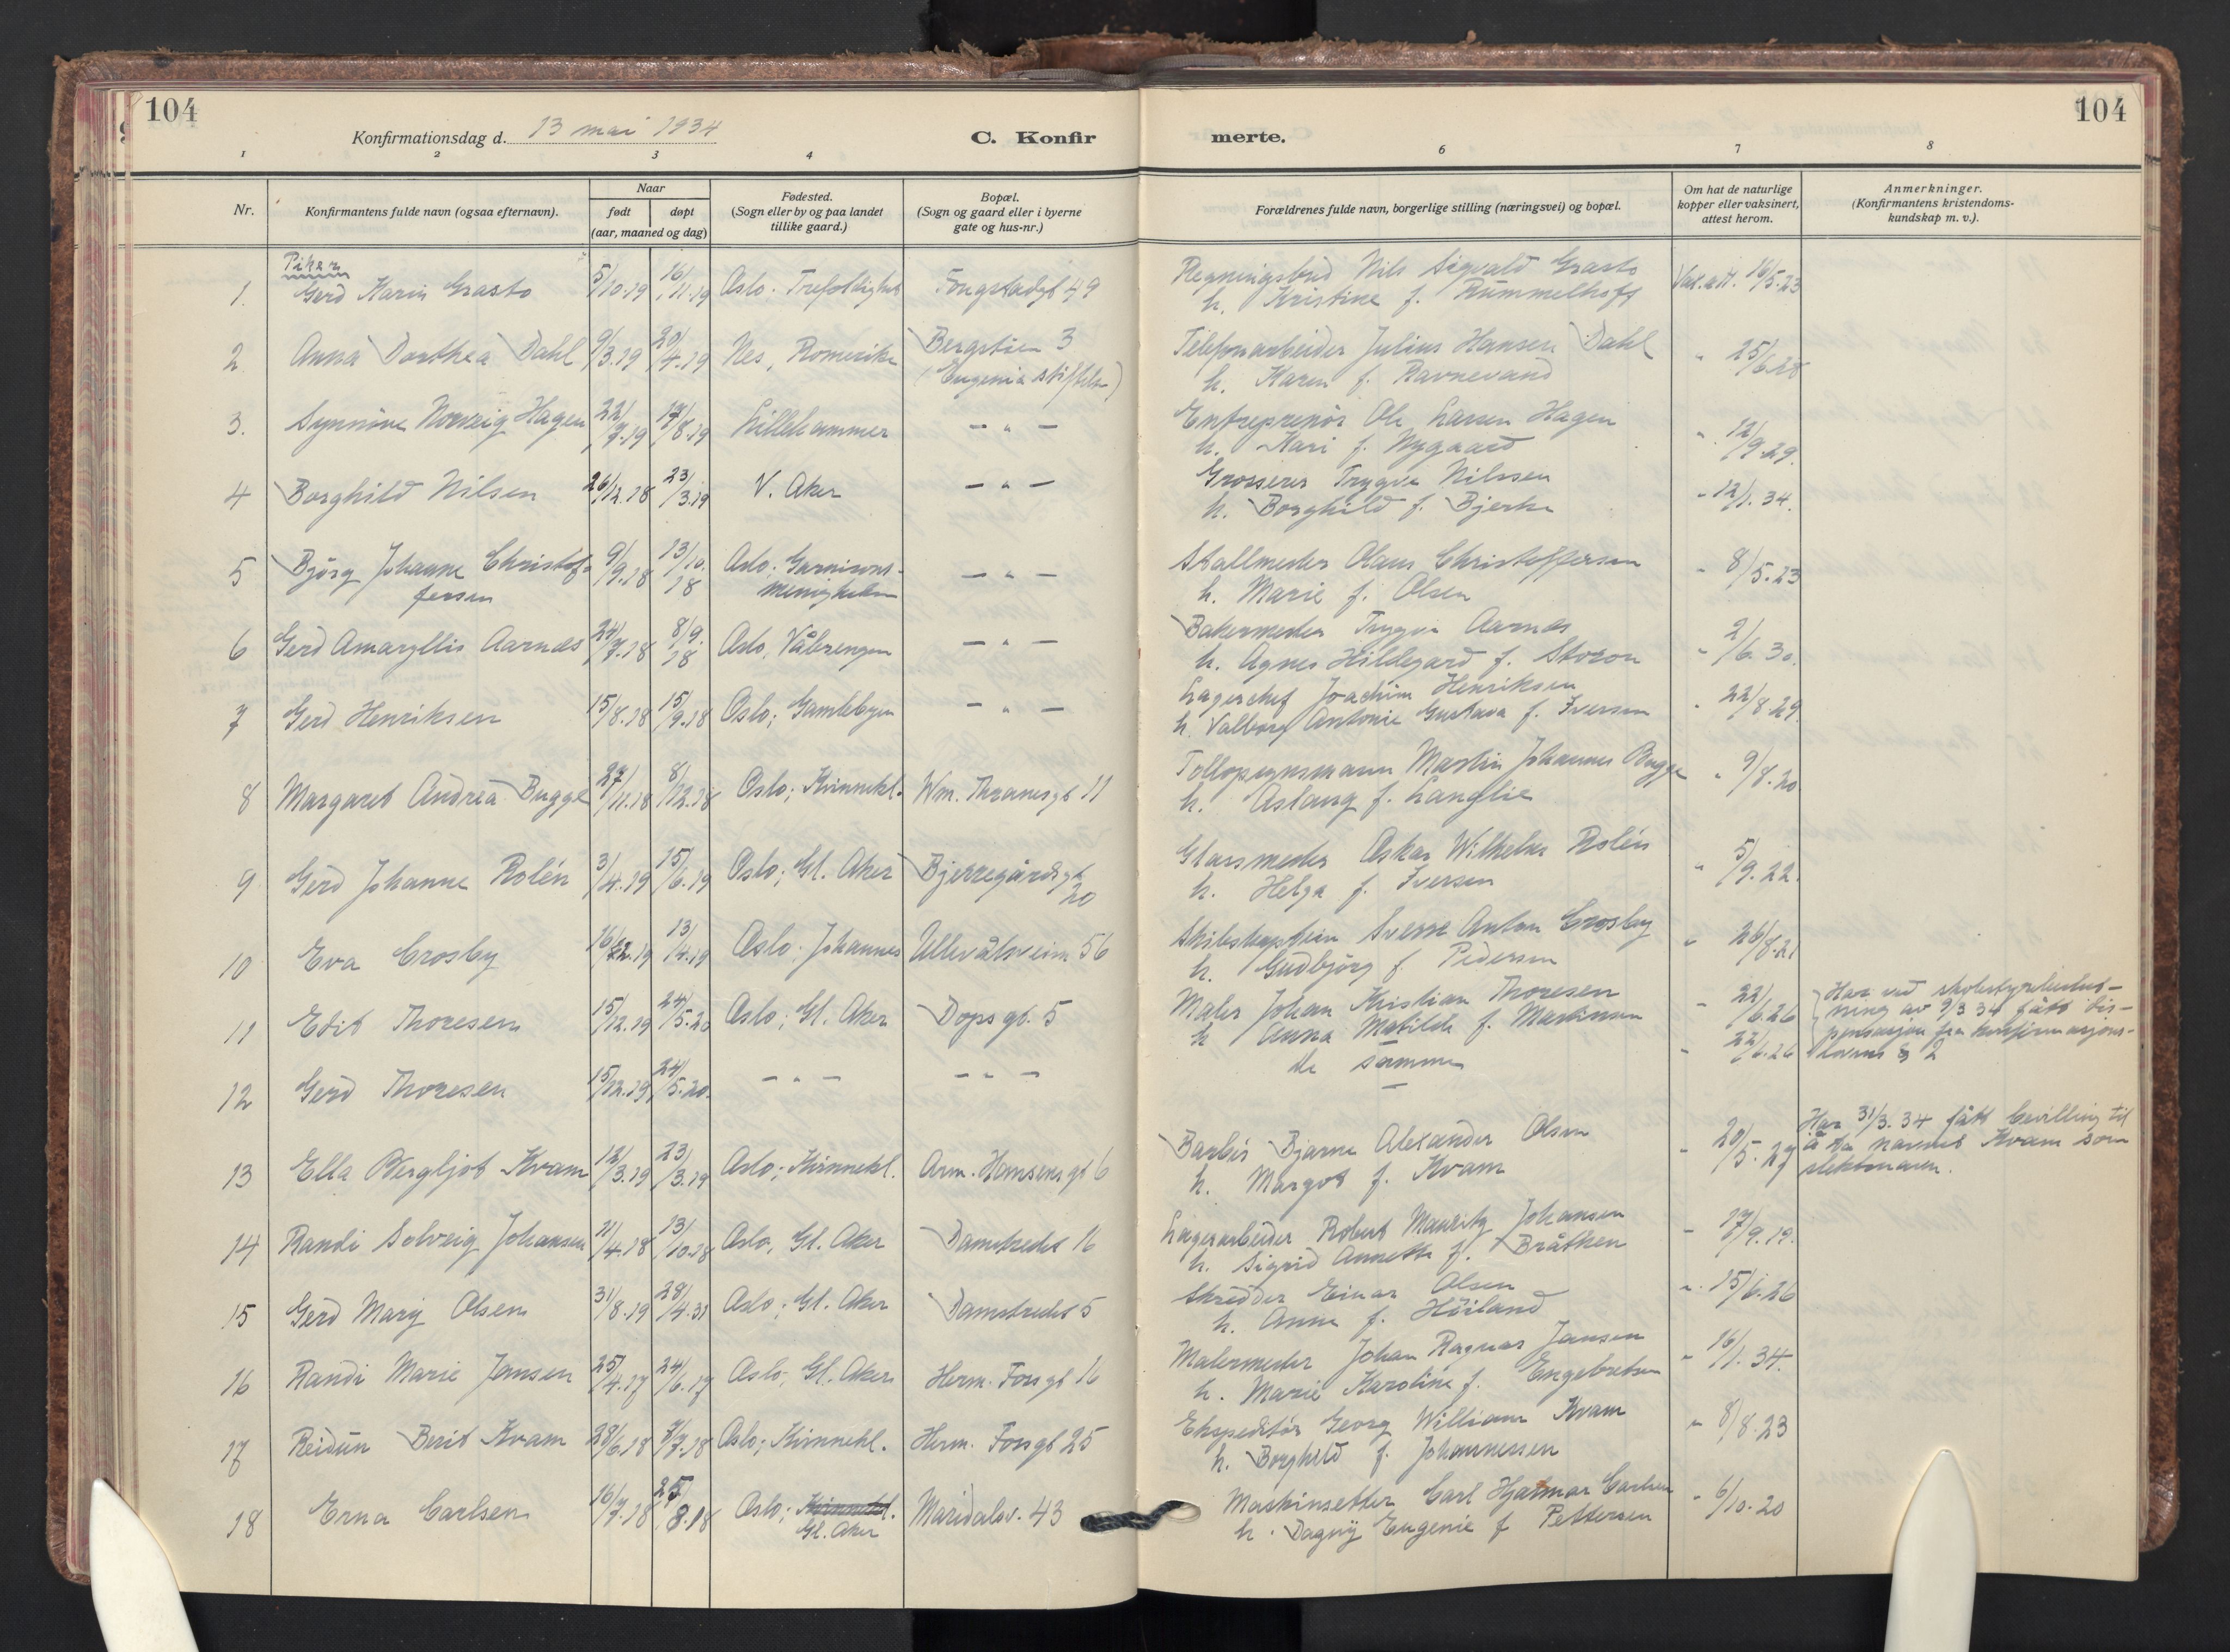 104
104
Konfirmationsdag d. 13 mai 1934
C. Konfir
merte.
1 2 3 4 6 7 8
Nr.
Konfirmantens fulde navn (ogsaa efternavn).
Naar
født
døpt
(aar, maaned og dag)
Fødested.
(Sogn eller by og paa landet
tillike gaard.)
Bopæl.
(Sogn og gaard eller i byerne
gate og hus-nr.)
Forældrenes fulde navn, borgerlige stilling (næringsvei) og bopæl.
Om hat de naturlige
kopper eller vaksinert,
attest herom.
Anmerkninger.
(Konfirmantens kristendoms-
kundskap m. v.).
Piker
1. Gerd Karin Grasto 5/10.19 16/11.19 Oslo. Trefoldighet 49
Nils Sigvald Grasto
h. Kristine f. Rummelhoff
Vak.att. 16/5.23
2 Anna Dorthea Dahl 9/3.19 20/4.19 Nes, Romerike Bergstien 3
(Eugenia stiftelse)
Telefonarbeider Julius Hansen Dahl
h. Karen f. Ravnevand
" 25/6.28
3. Synnöve Norveig Hagen 22/7.19 17/8.19 Lillehammer — " —
Entreprenör Ole Larsen Hagen
h. Kari f. Nygaard
" 12/9.29.
4 Borghild Nilsen 26/12.18 23/3.19 V. Aker — " —
Grosserer Trygve Nilssen
h. Borghild f. Bjerke
" 12/1.34.
5 Björg Johanne Christof-
fersen 9/9.18 13/10.
18 Oslo. Garnisons-
menigheten — " —
Stallmester Olaus Christoffersen
h. Marie f. Olsen
" 8/5.23
6 Gerd Amaryllis Aarnæs 24/7.18 8/9.
18 Oslo, Vålerengen — " —
Bakermester Trygve Aarnæs
h. Agnes Hildegard f. Storon
" 2/6.30.
7 Gerd Henriksen 15/8.18 15/9.18 Oslo; Gamlebyen — " —
Lagerchef Joachim Henriksen
h. Valborg Antonie Gustava f. Iversen
" 22/8.29.
8 Margaret Andrea Bugge 27/11.18 8/12.18 Oslo; Kirnnekl. Wm. Thranesgt 11
Tollopsynsmann Martin Johannes Bugge
h. Aslaug f. Langlie
" 9/8.20
9 Gerd Johanne Rolén 3/4.19 15/6.19 Oslo; Gl. Aker Bjerregårdsgt
20
Glassmester Oskar Wilhelm Rolén
h. Helga f. Iversen
" 5/9.22.
10 Eva Crosby 16/2.19 13/4.19 Oslo. Johannes Ullevålsveien 56
Skibskaptein Sverre Anton Crosby
h. Gudbjörg f. Pedersen
" 26/8.21
11 Edit Thoresen 15/12.19 24/5.20 Oslo; Gl. Aker Dopsgt. 5
Maler Johan Kristian Thoresen
h Anna Matilde f. Martinsen
" 22/6.26
Har ved skolestyrebeslut-
ning av 9/3 34 fått dis-
pensasjon fra konfirmasjons-
lovens § 2
12 Gerd Thoresen 15/12.19 24/5.20. — " — — " —
de samme
—
" 22/6.26
13 Ella Bergljot Kvam 12/3.19 23/3.19 Oslo; Kirnnekl. Arm. Hansens gt 6
Barber Bjarne Alexander Olsen
h. Margot f. Kvam
" 20/5.27
Har 31/3.34 fått bevilling til
å ta navnet Kvam som
slektsnavn.
14 Randi Solveig Johansen 11/4.18 13/10.18 Oslo, Gl. Aker Damstredet 16
Lagerarbeider Robert Mauritz Johansen
h. Sigrid Annette f. Bråthen
" 17/9.19.
15 Gerd Mary Olsen 31/8.19 28/4.31 Oslo; Gl. Aker Damstredet 5
Skredder Einar Olsen
h. Anna f. Höiland
" 15/6.26
16 Randi Marie Jansen 25/4.17 24/6.17 Oslo; Gl. Aker Herm. Fossgt 16
Malermester Johan Ragnar Jansen
h. Marie Karoline f. Engebretsen
" 16/1.34.
17 Reidun Berit Kvam 28/6.18 /7.18 Oslo; Kirnnekl. Herm. Fossgt 25
Ekspeditör Georg William Kvam
h. Borghild f. Johannessen
" 8/8.23
18 Erna Carlsen 16/7.18 25/8.18 Oslo; Kirnnekl.
Gl. Aker Maridalsv. 43
Maskinsetter Carl Hjalmar Carlsen
h. Dagny Eugenie f Pettersen
" 6/10.20